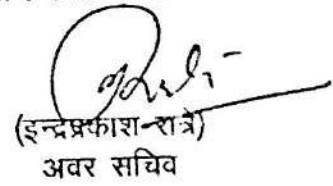 (इन्द्रप्रकाश रात्रे)
अवर सचिव